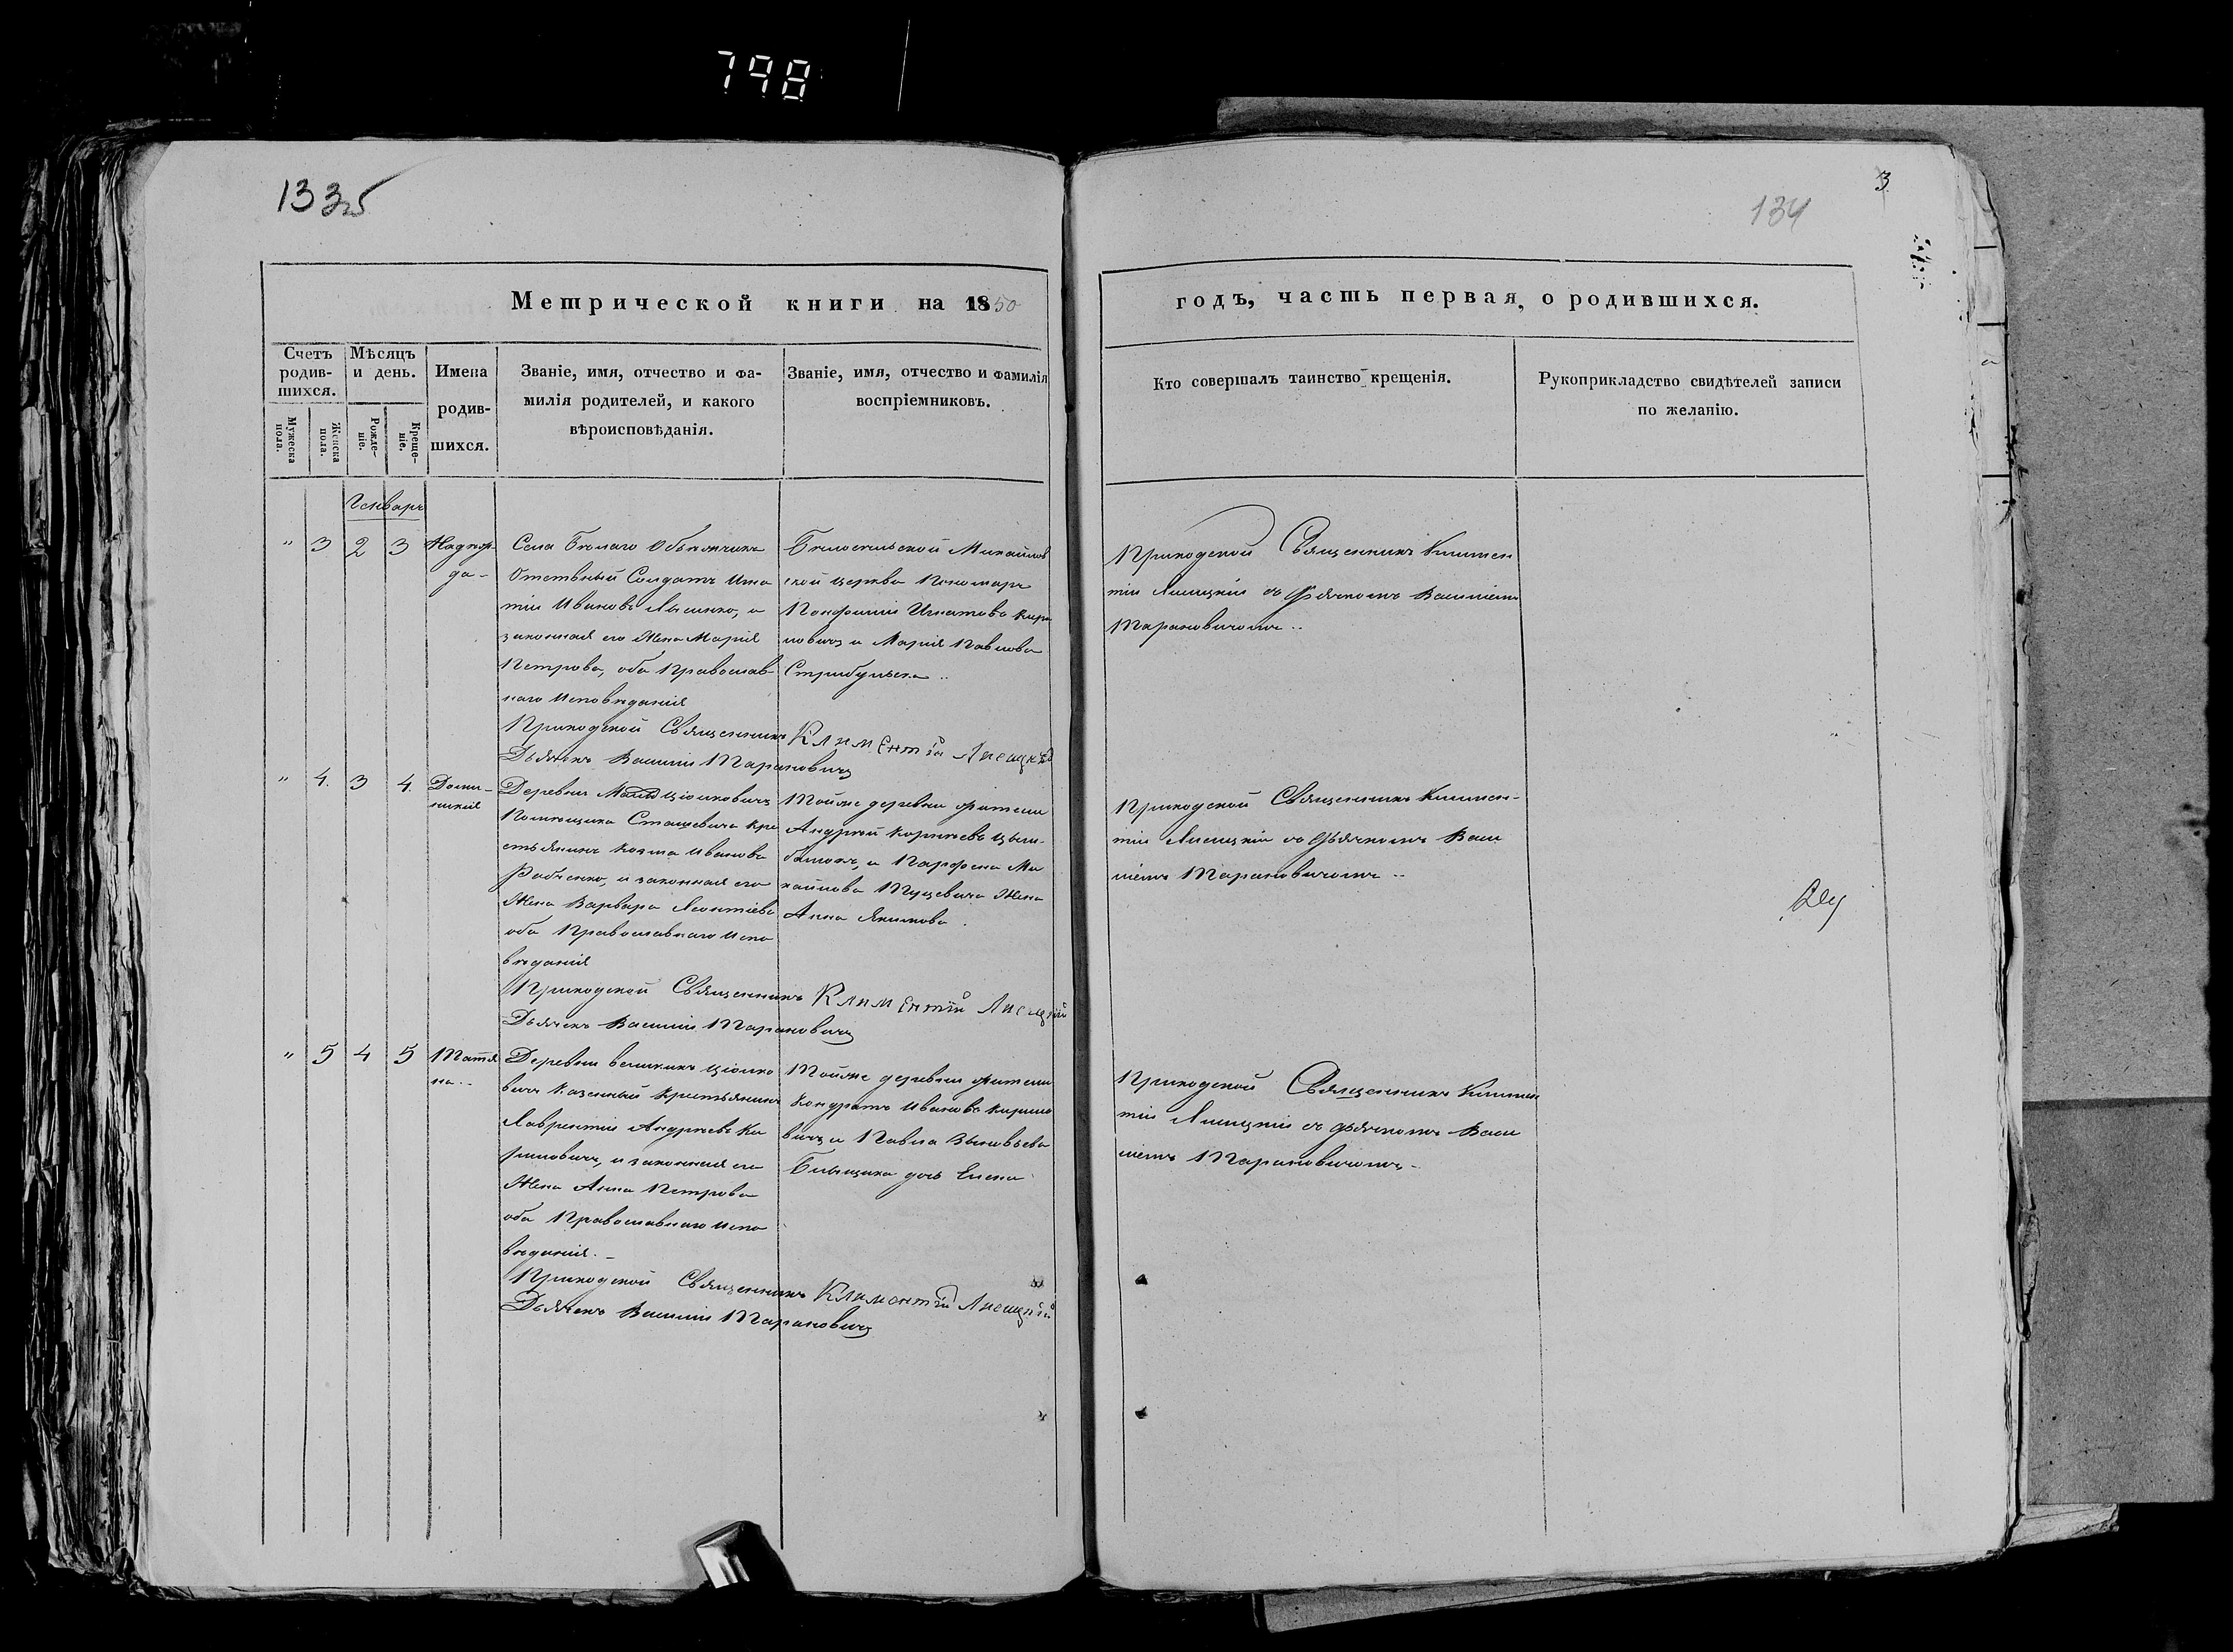 798
1335
3
134
Метрической книги на 1850
годъ, часть первая, о родившихся.
Счетъ родив-шихся.
Мужеска пола.
Женска пола.
Мѣсяцъ и день.
Рожде-ніе.
Креще-ніе.
Имена родив-шихся.
Званіе, имя, отчество и фа-
милія родителей, и какого
вѣроисповѣданія.
Званіе, имя, отчество и фамилія
воспріемниковъ.
Кто совершалъ таинство крещенія.
Рукоприкладство свидѣтелей записи
по желанію.
Генварь
" 3 2 3
Надѣж-
да-
Села Бѣлаго
Отставный Солдатъ Игна
тій Ивановъ Лысенко, и
законная его Жена Марія
Петрова, оба Православ-
наго Исповѣданія
Михайлов
ской церкви Пономарь
Игнатовъ Кири
ловичъ и Марія Павлова
Приходской Священникъ Климен
тій Лисицкій съ Дьячкомъ Василіемъ
Тарановичомъ..
Приходской Священникъ Климентій Лисицкій
Дьячекъ Василій Тарановичъ
" 4. 3 4.
Доми-
никія
Деревни
Помѣщика Сташевича Кре
стьянинъ Козма Ивановъ
Рабченко, и законная его
Жена Варвара Леонтіева
оба Православнаго Испо
вѣданія
Тойже деревни жители
Андрей Корнѣевъ Цым-
баликъ, и Парфена Ми
хайлова Жена
Анна Якимова.
Приходской Священникъ Климен-
тій Лисицкій съ Дьячкомъ Васи
ліемъ Тарановичомъ..
Приходской Священникъ Климентій Лисицкій
Дьячекъ Василій Тарановичъ
" 5 4 5
Татія
на..
Деревни великихъ Ціолко
вичъ Казенный Крестьянинъ
Лаврентій Андреевъ Ки
риловичъ, и законная его
Жена Анна Петрова
оба Православнаго Испо
вѣданія.-
Тойже деревни жители
Кондратъ Ивановъ Кирило
вичъ и Павла Зиновьева
дочь Елена
Приходской Священникъ Климен
тій Лисицкій съ дьячкомъ Васи
ліемъ Тарановичомъ-
Приходской Священникъ Климентій Лисицкій
Дьячекъ Василій Тарановичъ